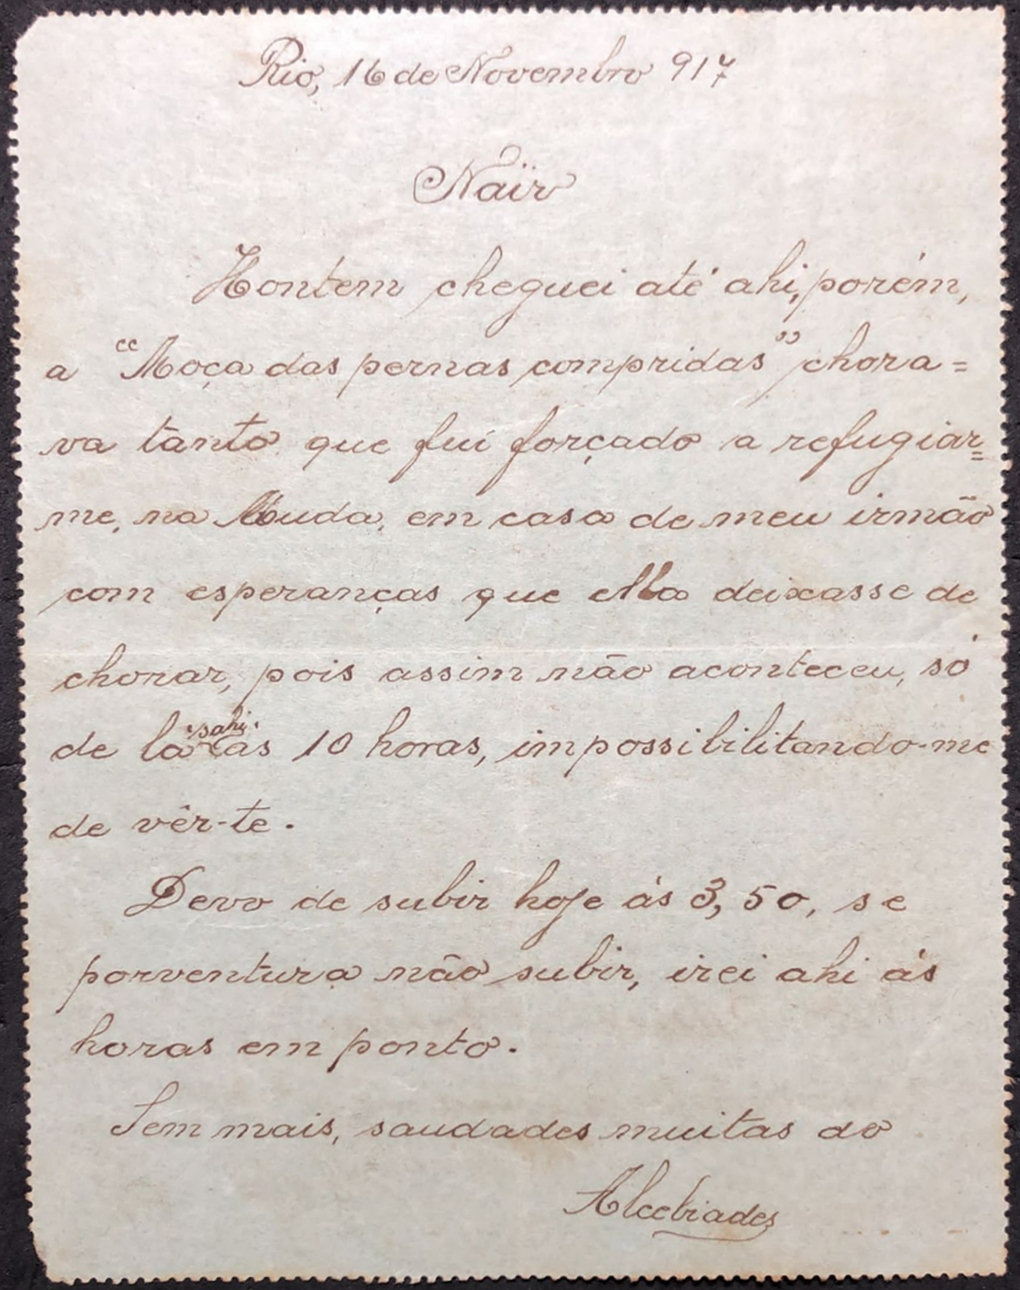 Rio, 16 de Novembro 917
Naïr
Hontem cheguei até ahi, porém,
a "Moça das pernas compridas" chora=
va tanto que fui forçado a refugiar=
me, na Muda, em casa de meu irmão
com esperanças que ella deixasse de
chorar, pois assim não aconteceu, só
sahi
de lá ás 10 horas, impossibilitando-me
de vêr-te.
Devo de subir hoje ás 3,50, se
porventura não subir, irei ahi ás
horas em ponto.
Sem mais, saudades muitas do
Alcebiades